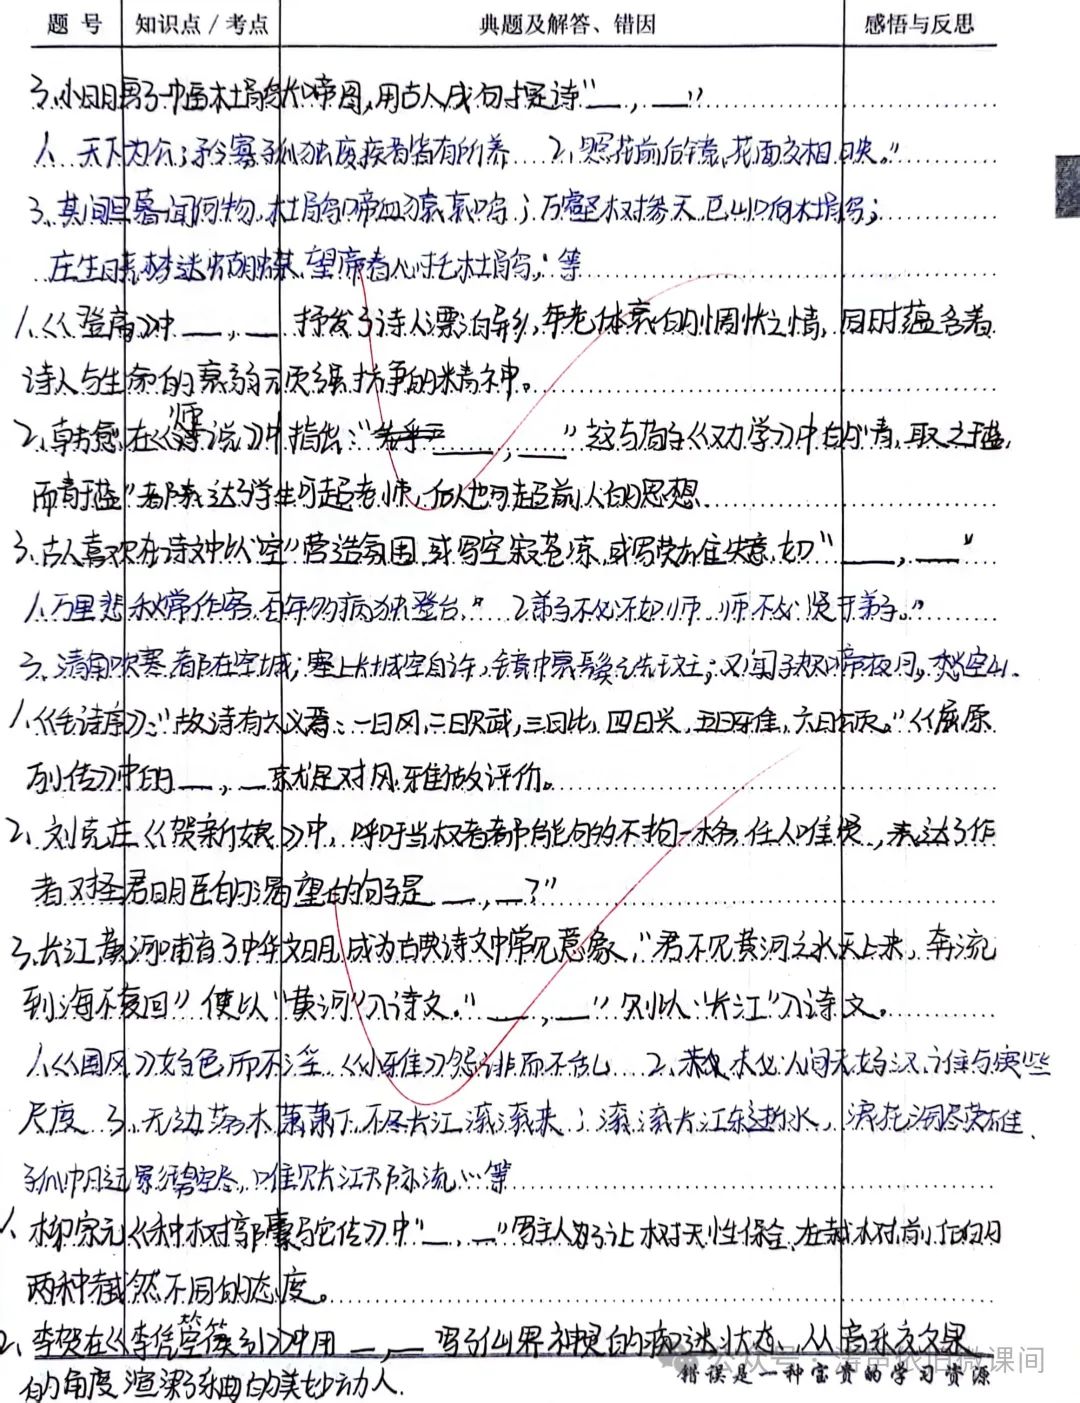 题 号 知识点 / 考点 典题及解答、错因 感悟与反思
3.小明写了一幅杜鹃啼图,用古人成句提诗"__,__"
1. 天下为公;矜寡孤独废疾者皆有所养 2.照花前后镜,花面交相映。"
3.其间旦暮闻何物,杜鹃啼血猿哀鸣;万壑树参天,巴山响杜鹃;
庄生晓梦迷蝴蝶,望帝春心托杜鹃;等
1.《登高》中__,__抒发了诗人漂泊异乡,年老体衰的惆怅之情,同时蕴含着
诗人与生命的衰弱顽强抗争的精神。
2.韩愈在《师说》中指出:"__,__"这与荀子《劝学》中的"青,取之于蓝,
而青于蓝"都表达了学生可超老师,后人也可超前人的思想.
3.古人喜欢在诗文中以"空"营造氛围,或写空寂苍凉,或写英雄失意,如"__,__"
1.万里悲秋常作客,百年多病独登台。" 2.弟子不必不如师,师不必贤于弟子。"
3.清角吹寒,都在空城;塞上长城空自许,镜中衰鬓已先斑;又闻子规啼夜月,愁空山.
1.《毛诗序》:"故诗有六义焉:一曰风,二曰赋,三曰比,四曰兴,五曰雅,六曰颂。"《屈原
列传》中的__,__就是对风、雅做评价。
2.刘克庄《贺新郎》中,呼吁当权者都能够不拘一格,任人唯贤,表达了作
者对圣君明臣的渴望的句子是__,__?"
3.长江,黄河哺育了中华文明,成为古典诗文中常见意象,"君不见黄河之水天上来,奔流
到海不复回"便以"黄河"入诗文。"__,__"则以"长江"入诗文。
1.《国风》好色而不淫,《小雅》怨诽而不乱 2.未必人间无好汉,谁与宽些
尺度 3.无边落木萧萧下,不尽长江滚滚来;滚滚长江东逝水,浪花淘尽英雄、
孤帆远影碧空尽,唯见长江天际流;等
1.柳宗元《种树郭橐驼传》中"__,__"写主人为了让树天性保全,在栽树前后的
两种截然不同的态度。
2.李贺在《李凭箜篌引》中用__,__写了仙界神灵的痴迷状态,从音乐效果
的角度渲染了乐曲的美妙动人.
公众号 · 涛声依旧微课间
错误是一种宝贵的学习资源